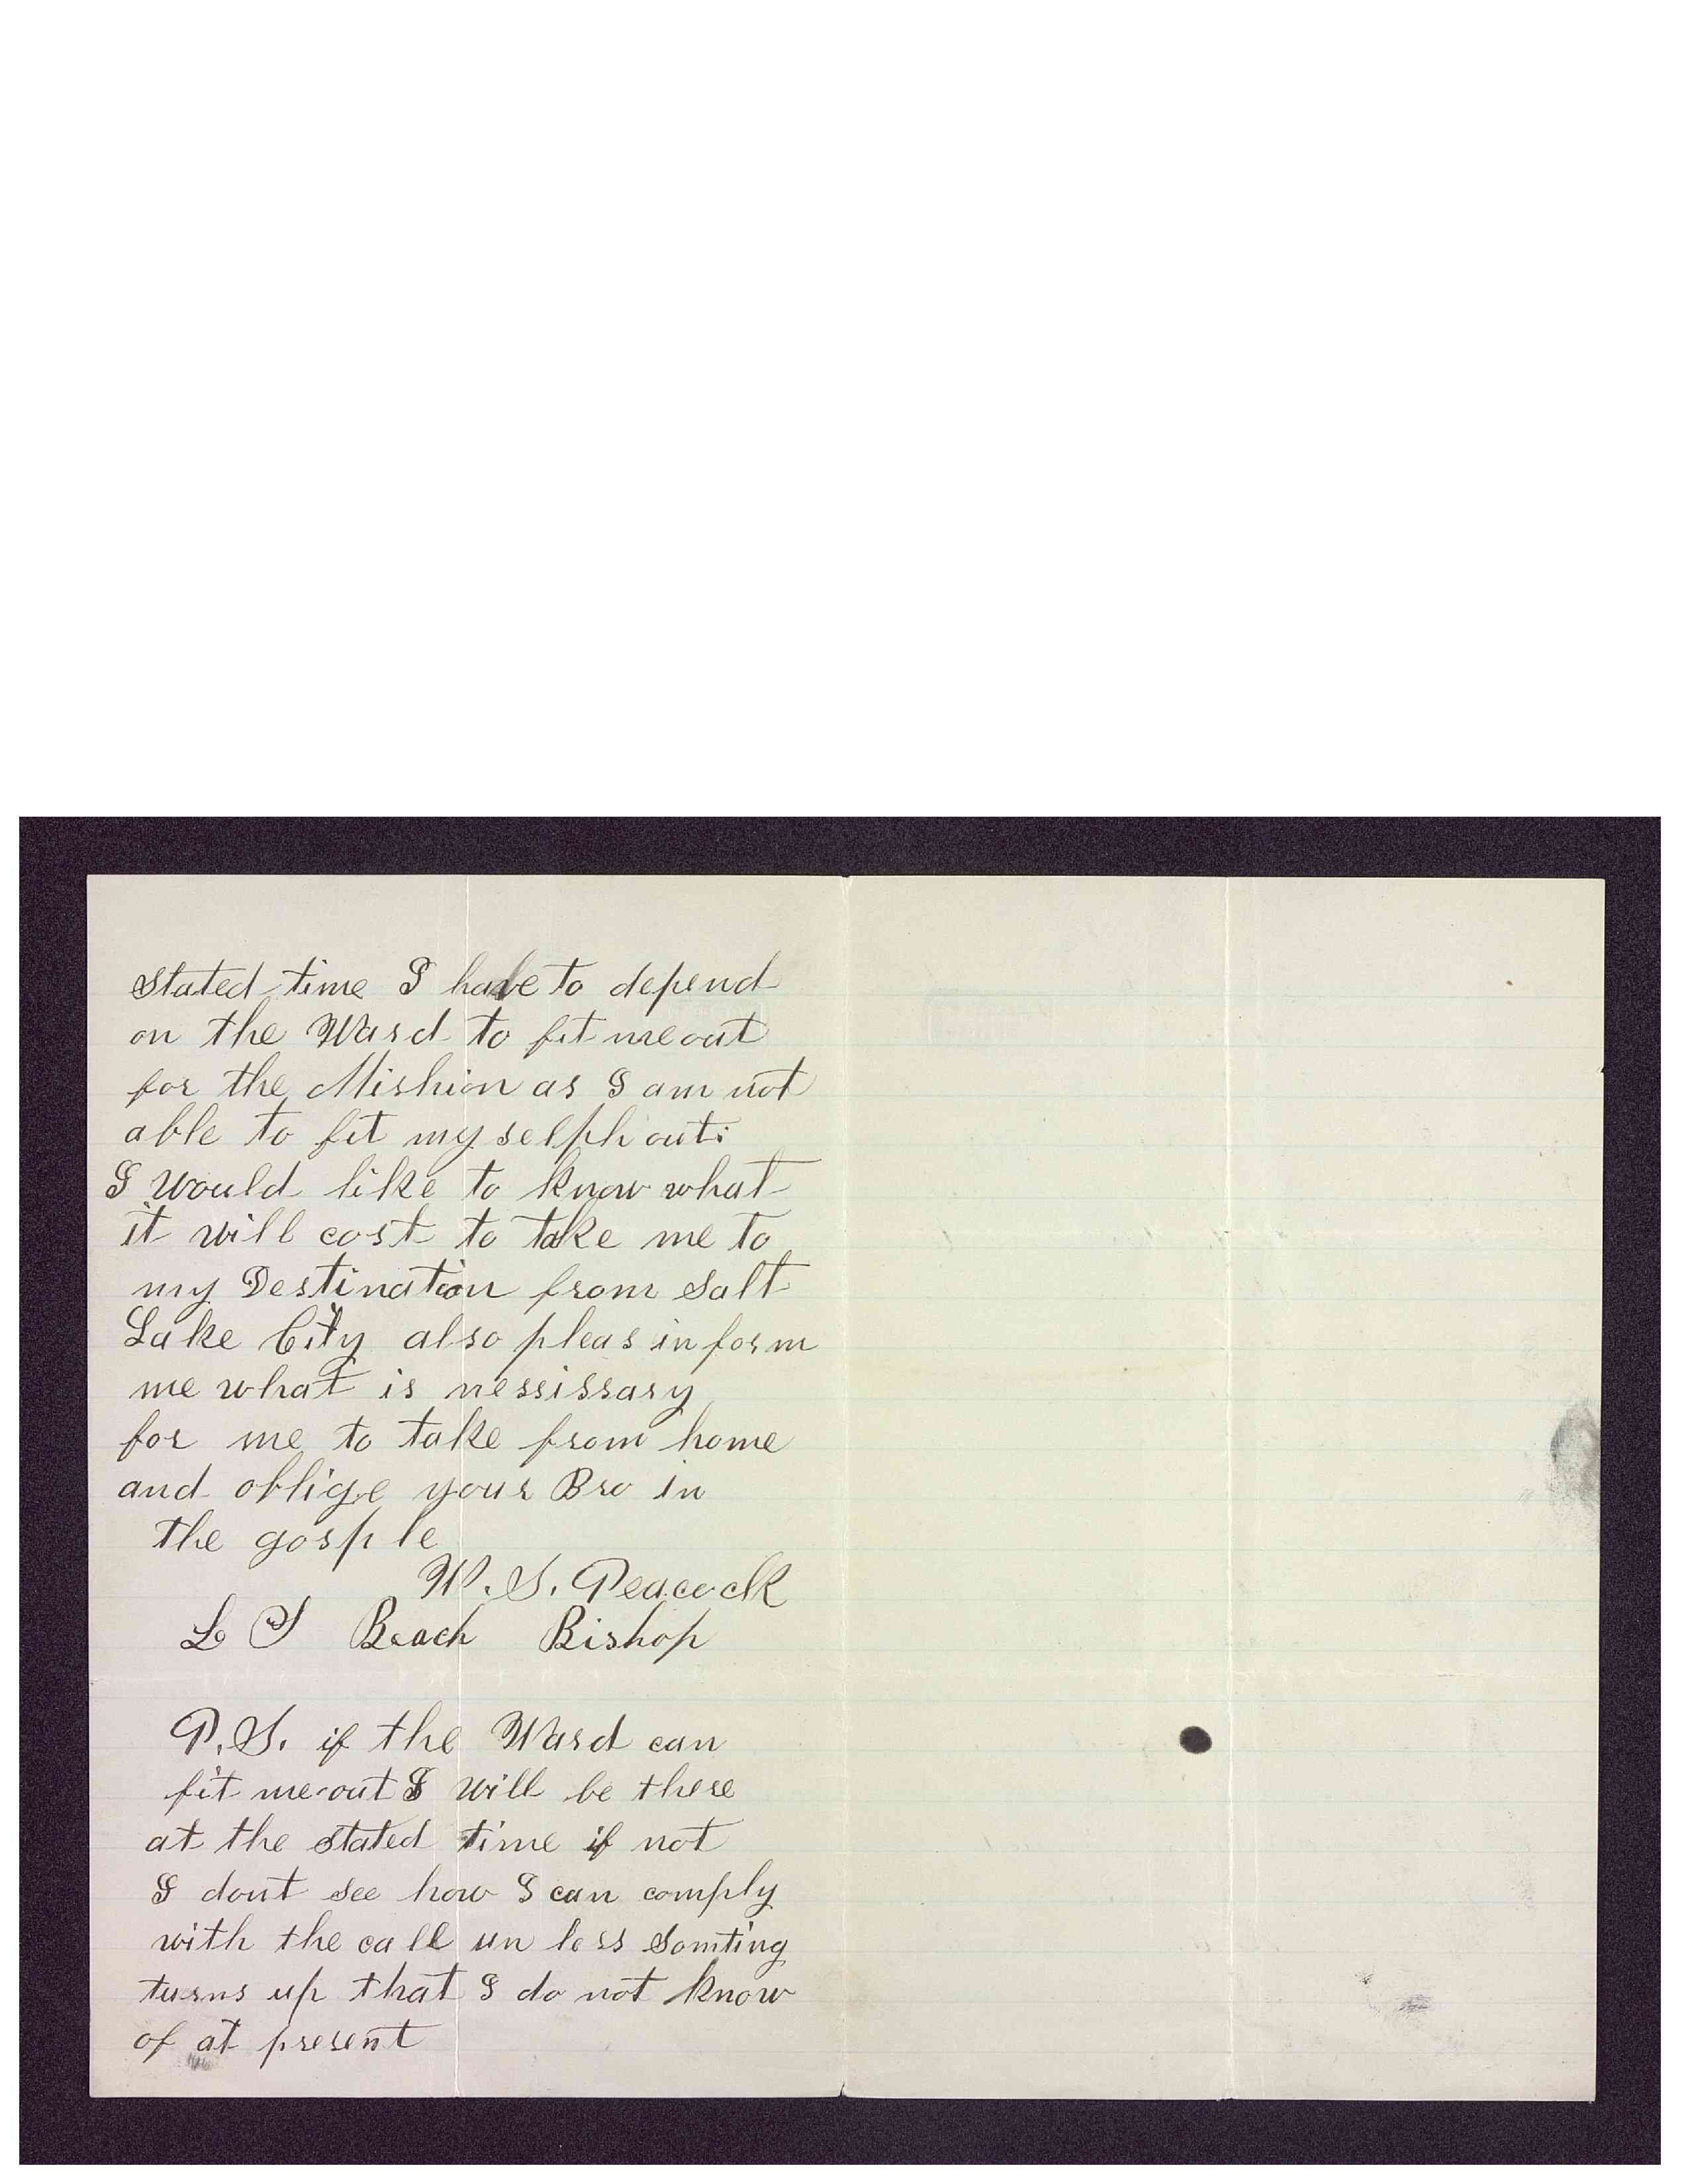 stated time I have to depend
on the Ward to fit me out
for the Mishion as I am not
able to fit my selph out:
I would like to know what
it will cost to take me to
my Destination from Salt
Lake City also pleas inform
me what is nessissary
for me to take from home
and oblige your Bro in
the gosple
W. S. Peacock
L S Beach Bishop
P.S. if the Ward can
fit me out I will be there
at the stated time if not
I dont see how I can comply
with the call un less Somting
turns up that I do not know
of at present